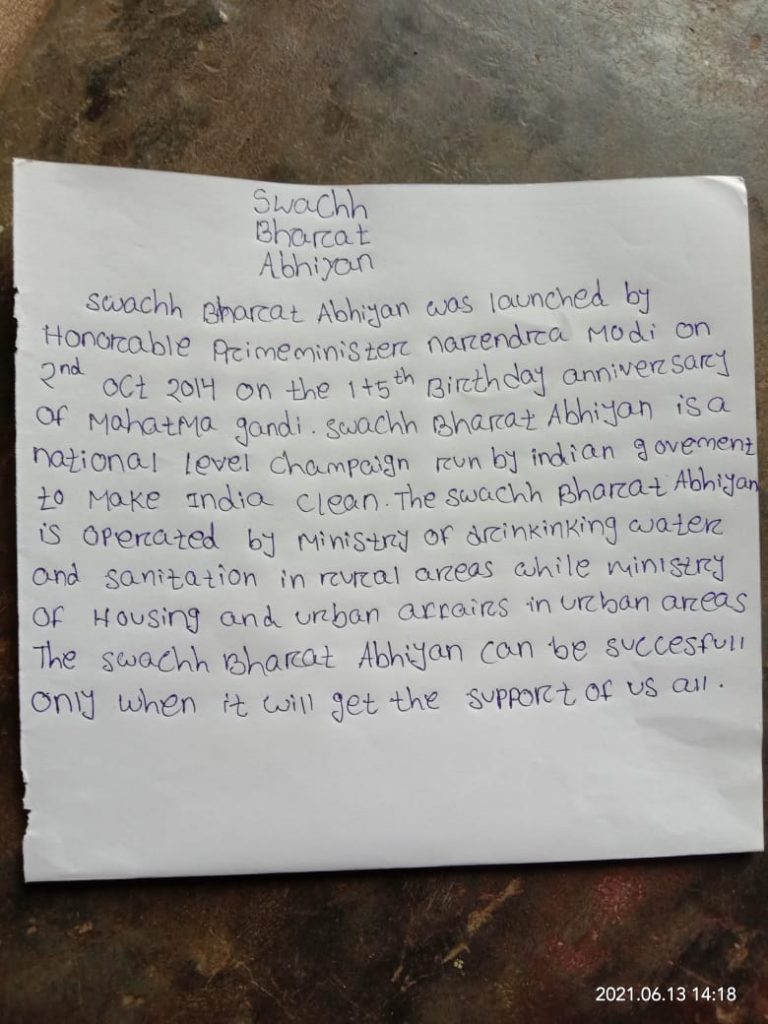 Swachh
Bharat
Abhiyan
swachh Bharat Abhiyan was launched by
Honorable Primeminister narendra Modi on
2nd Oct 2014 on the 1+5th Birthday anniversary
of Mahatma gandi. swachh Bharat Abhiyan is a
national level champaign run by indian govement
to Make India clean. The swachh Bharat Abhiyan
is operated by Ministry of drinkinking water
and sanitation in rural areas while ministry
of Housing and urban arrairs in urban areas
The swachh Bharat Abhiyan can be succesfull
only when it will get the support of us all.
2021.06.13 14:18